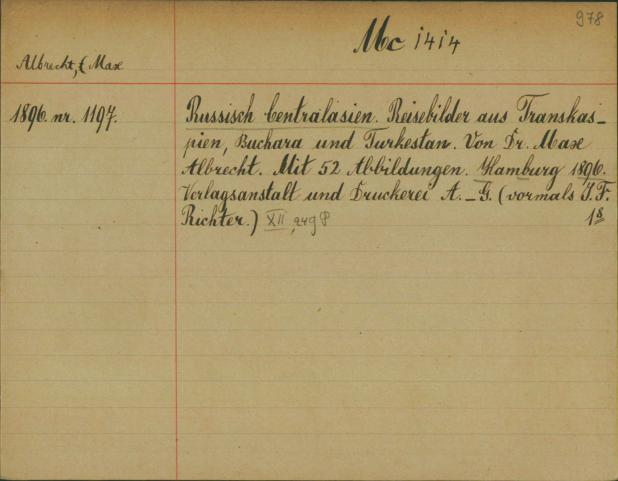 978
Mc 1414
Albrecht, Max
1896. nr. 1197.
Russisch Centralasien. Reisebilder aus Transkas-
pien, Buchara und Turkestan. Von Dr. Max
Albrecht. Mit 52 Abbildungen. Hamburg 1896.
Verlagsanstalt und Druckerei A.-G. (vormals J. F.
Richter.) XII,
1 8